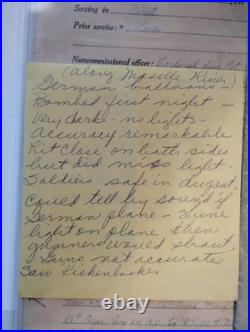 Serving in
Prior service:
Noncommissioned officer:
(along Moselle River)
German balloons -
Bombed first night -
very dark - no lights -
Accuracy remarkable
hit close on both sides
but did miss light -
Soldiers safe in dugout,
could tell by sound if
German plane - Shine
light on plane then
gunners would shoot,
Guns not accurate
Saw Rickenbacker